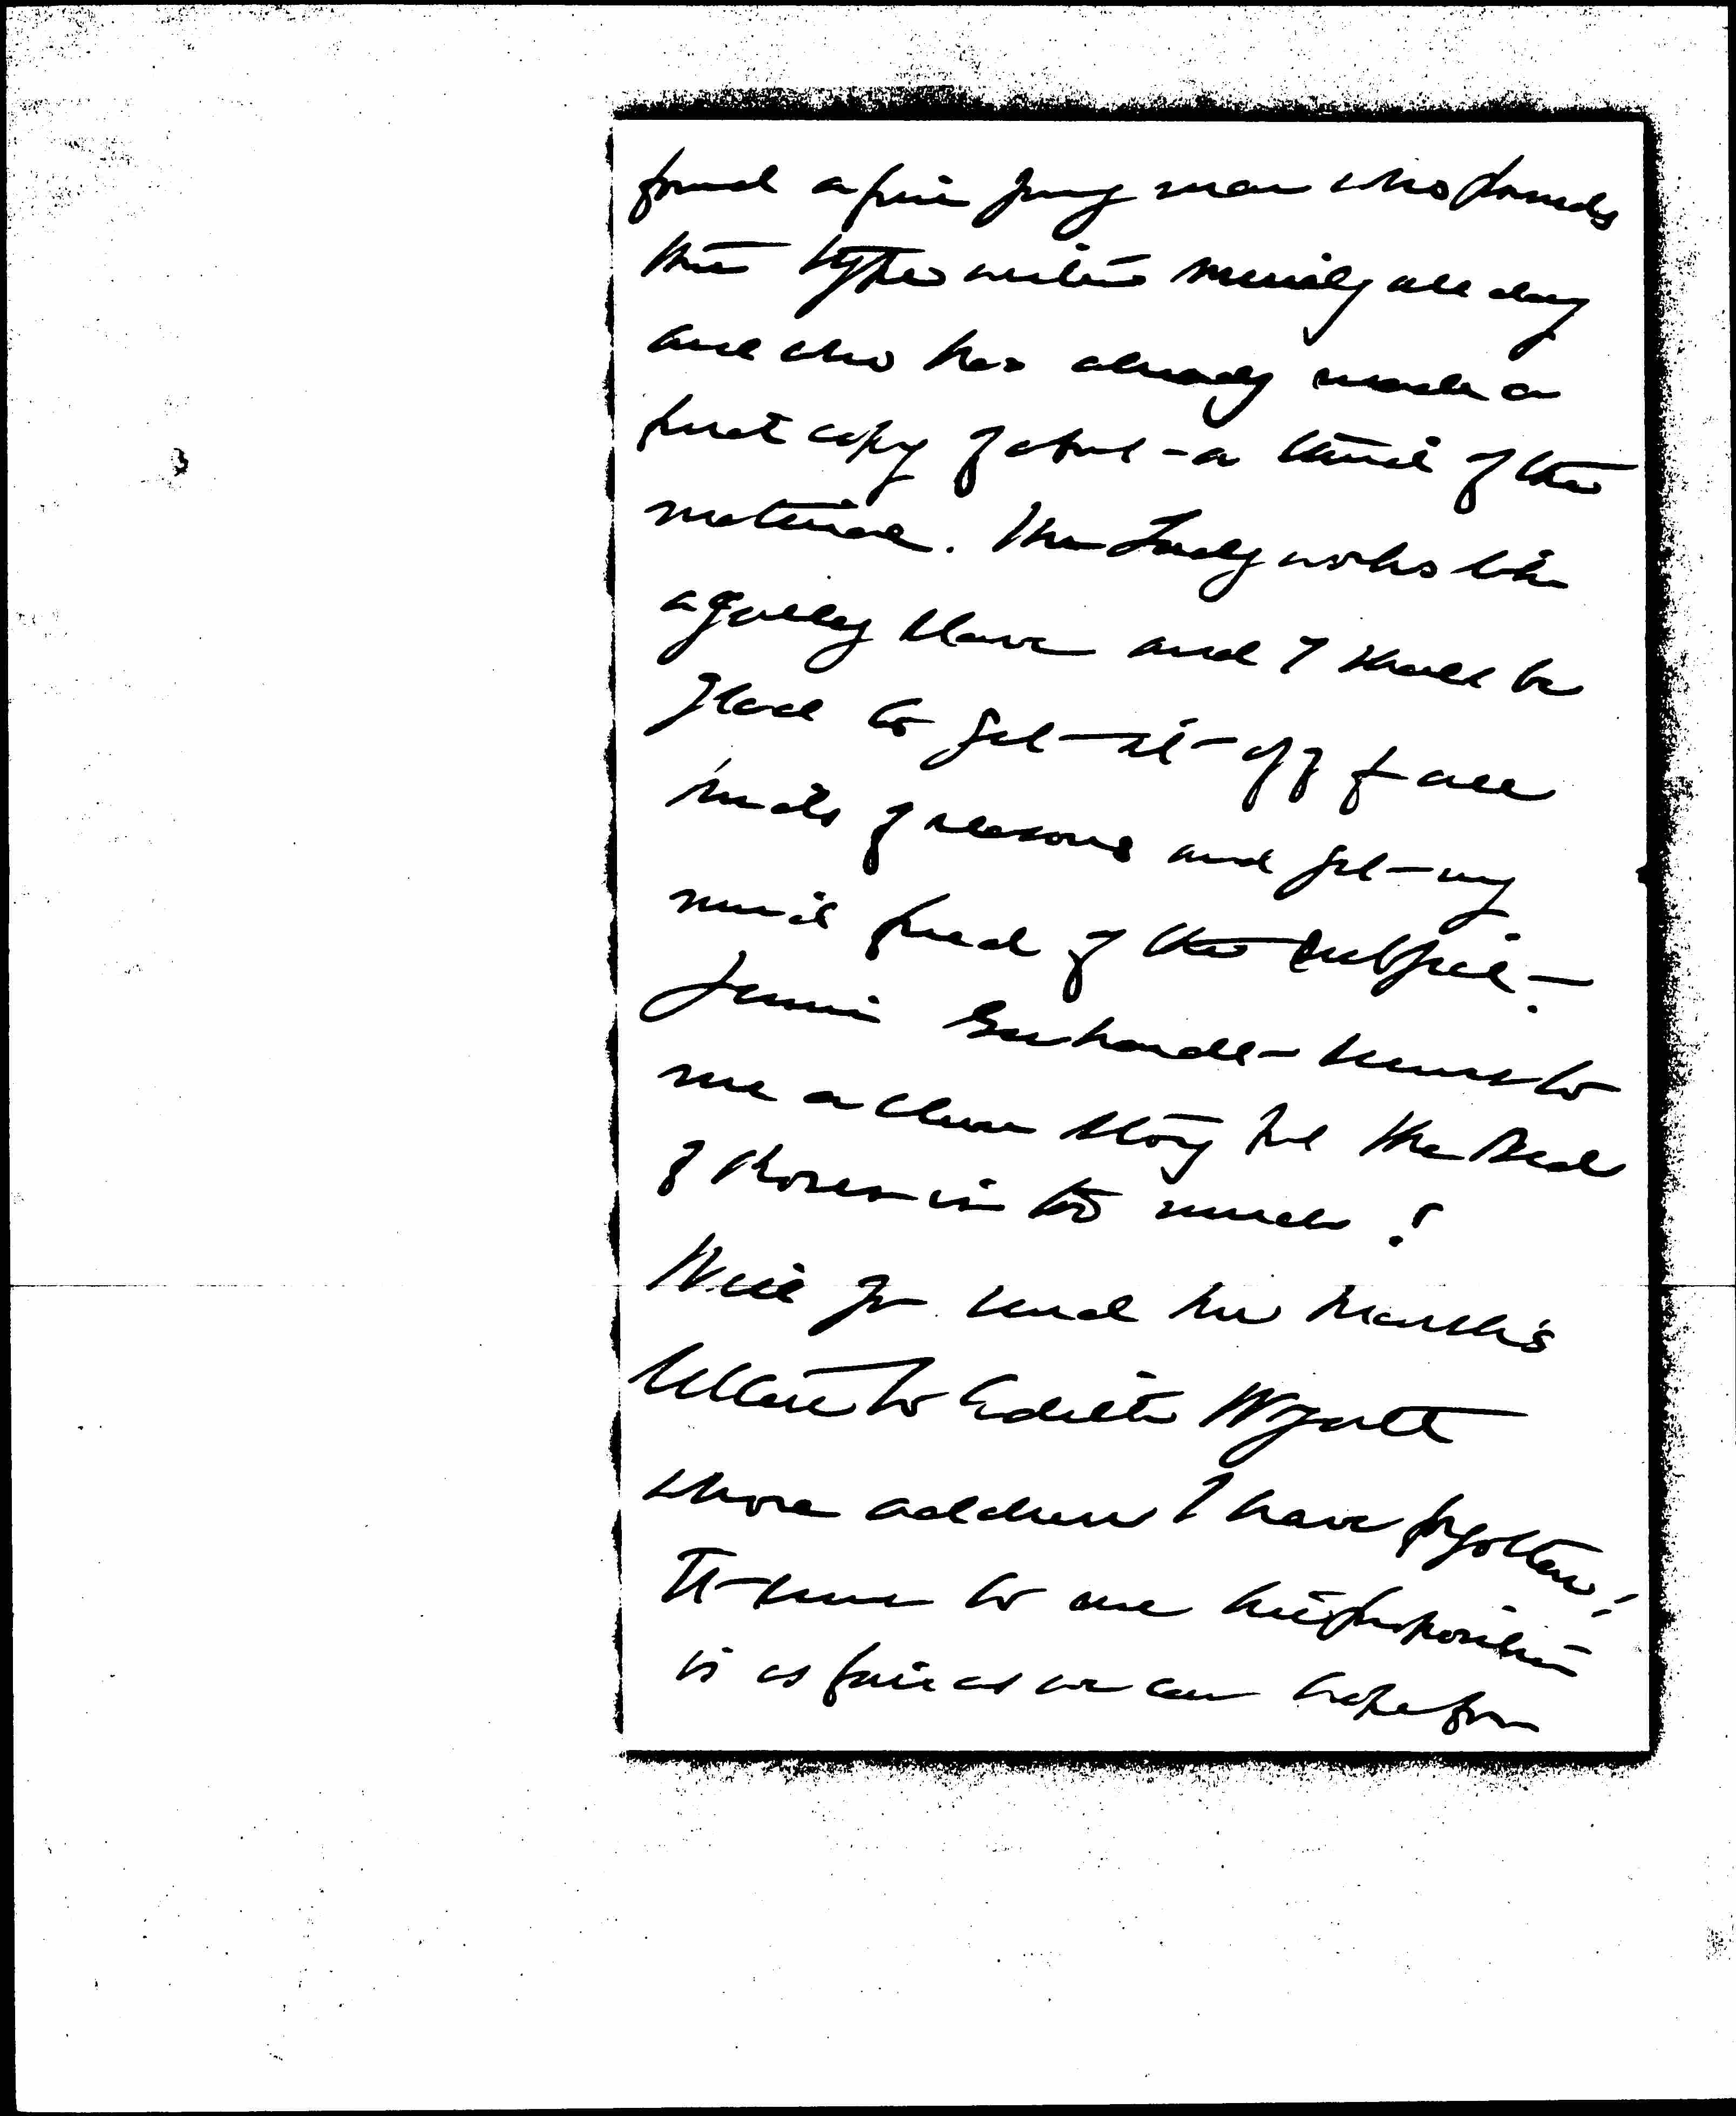 found a fine young man who pounds
the typewriter merrily all day
and who has already made a
first copy of about-a third of the
material. The Lady works like
a galley slave and I shall be
glad to get-it-off for all
kinds of reasons and get-my
mind freed of the subject-.
Jennie Gerhardt-seems to
me a clever story but the Bed
of Roses is too much!
Will you send me
letter to Edith Wyatt
whose address I have forgotten!
It-seems to me his proposition
is as fair as we can hope from